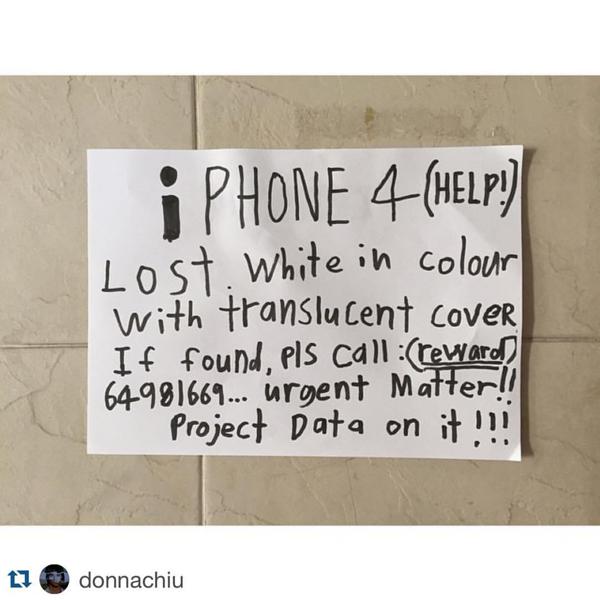 iPHONE 4 (HELP!)
LOST. White in colour
With translucent cover
If found, pls call: (reward)
64981669... urgent Matter!!
Project Data on it!!!
donnachiu